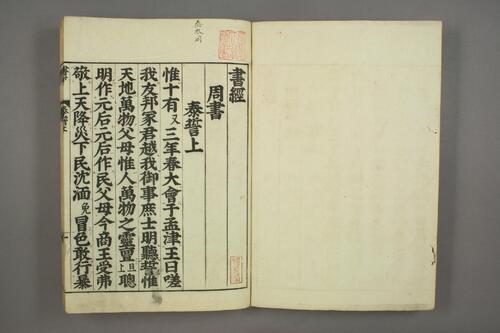 書經
周書
泰誓上
惟十有又三年春大會于孟津王曰嗟
我友邦冢君越我御事庶士明聽誓惟
天地萬物父母惟人萬物之靈亶旦上聰
明作元后元后作民父母今商王受弗
敬上天降災下民沈湎免冒色敢行暴